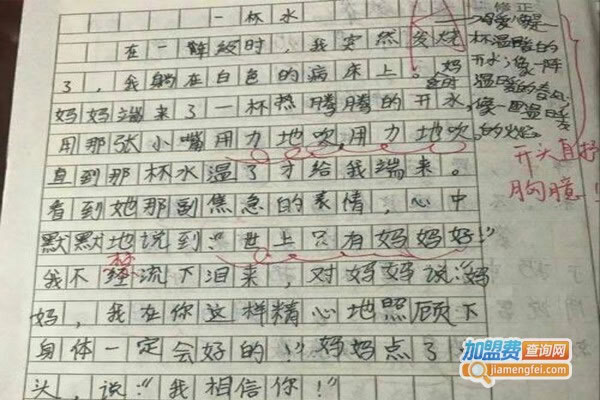 一杯水
在一年级时，我突然发烧
了，我躺在白色的病床上。妈
妈妈端来了一杯热腾腾的开水，
用那张小嘴用力地吹，用力地吹，
直到那杯水温了才给我端来。
看到她那副焦急的表情，心中
默默地说到：“世上只有妈妈好！”
我不禁流下泪来，对妈妈说：“妈
妈，我在你这样精心地照顾下
身体一定会好的！”妈妈点了
头，说：“我相信你！”
修正
杯温暖的
开水；像一阵
温暖的春风；
像一团温暖
的火
开头直抒
胸臆！
加盟费查询网
jiamengfei.com